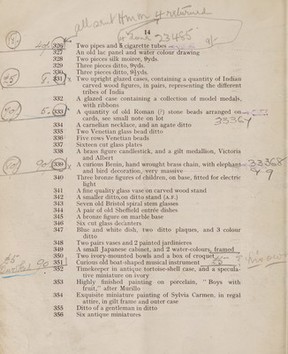 all sent Hmm & returned
14
23455
326 Two pipes and 8 cigarette tubes
327 An old lac panel and water colour drawing
328 Two pieces silk moiree, 9yds.
329 Three pieces ditto, 9yds.
330 Three pieces ditto, 9½yds.
331 Two upright glazed cases, containing a quantity of Indian
carved wood figures, in pairs, representing the different
tribes of India
332 A glazed case containing a collection of model medals,
with ribbons
333 A quantity of old Roman (?) stone beads arranged on
cards, see small note on lot
334 A carnelian necklet, and an agate ditto
335 Two Venetian bead ditto
336 Five rows Venetian beads
337 Sixteen cut glass plates
338 A brass figure candlestick, and a gilt medallion, Victoria
and Albert
339 A curious Benin, hand wrought brass chain, with elephant
and bird decoration, very massive
340 Three bronze figures of children, on base, fitted for electric
light
341 A fine quality glass vase on carved wood stand
342 A smaller ditto, on ditto stand (A.F.)
343 Seven old Bristol spiral stem glasses
344 A pair of old Sheffield entrée dishes
345 A bronze figure on marble base
346 Six cut glass decanters
347 Blue and white dish, two ditto plaques, and 3 colour
ditto
348 Two pairs vases and 2 painted jardinieres
349 A small Japanese cabinet, and 2 water-colours, framed
350 Two ivory-mounted bowls and a box of croquet
351 Curious old boat-shaped musical instrument
352 Timekeeper in antique tortoise-shell case, and a specula-
tive miniature on ivory
353 Highly finished painting on porcelain, "Boys with
fruit," after Murillo
354 Exquisite miniature painting of Sylvia Carmen, in regal
attire, in gilt frame and outer case
355 Ditto of a gentleman in ditto
356 Six antique miniatures